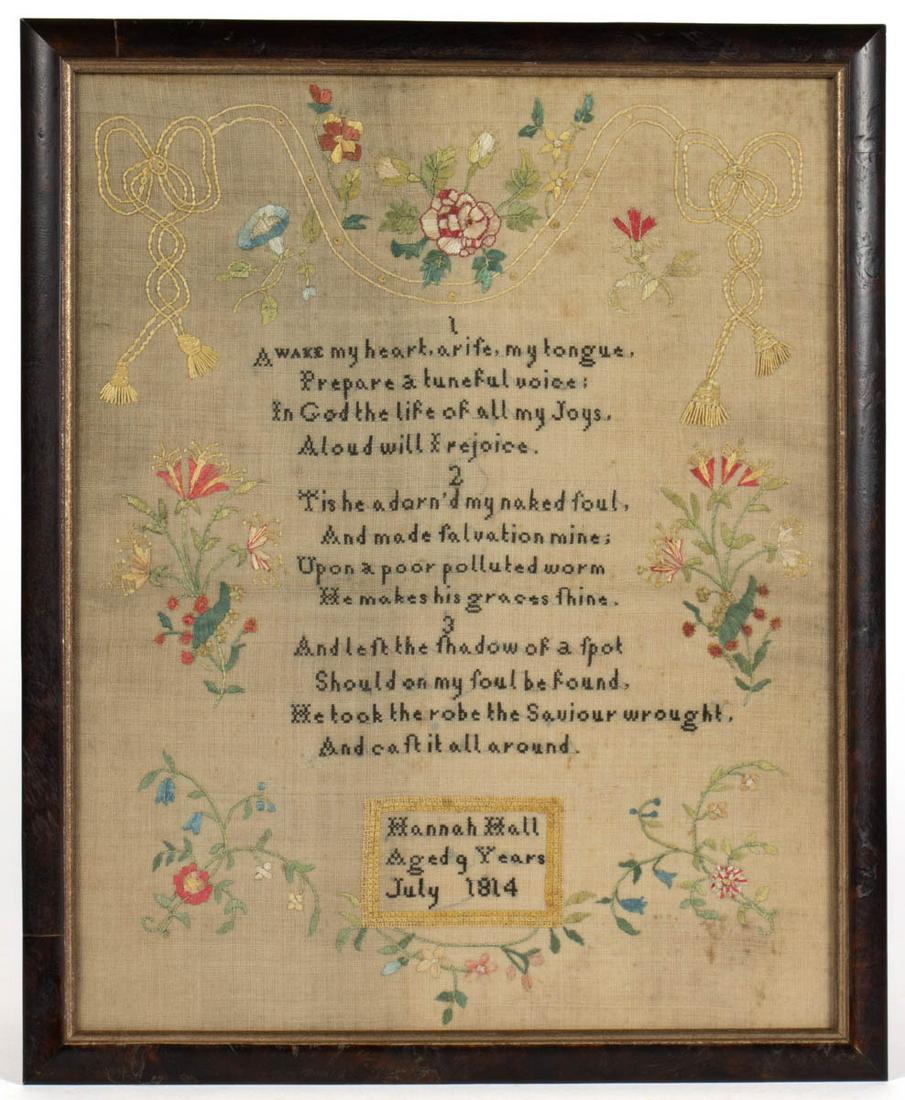 1
AWAKE my heart, ariſe, my tongue,
Prepare a tuneful voice;
In God the life of all my Joys,
Aloud will I rejoice.
2
'Tis he adorn'd my naked ſoul,
And made ſalvation mine;
Upon a poor polluted worm
He makes his graces ſhine.
3
And leſt the ſhadow of a ſpot
Should on my ſoul be found,
He took the robe the Saviour wrought,
And caſt it all around.
Hannah Hall
Aged 9 Years
July 1814